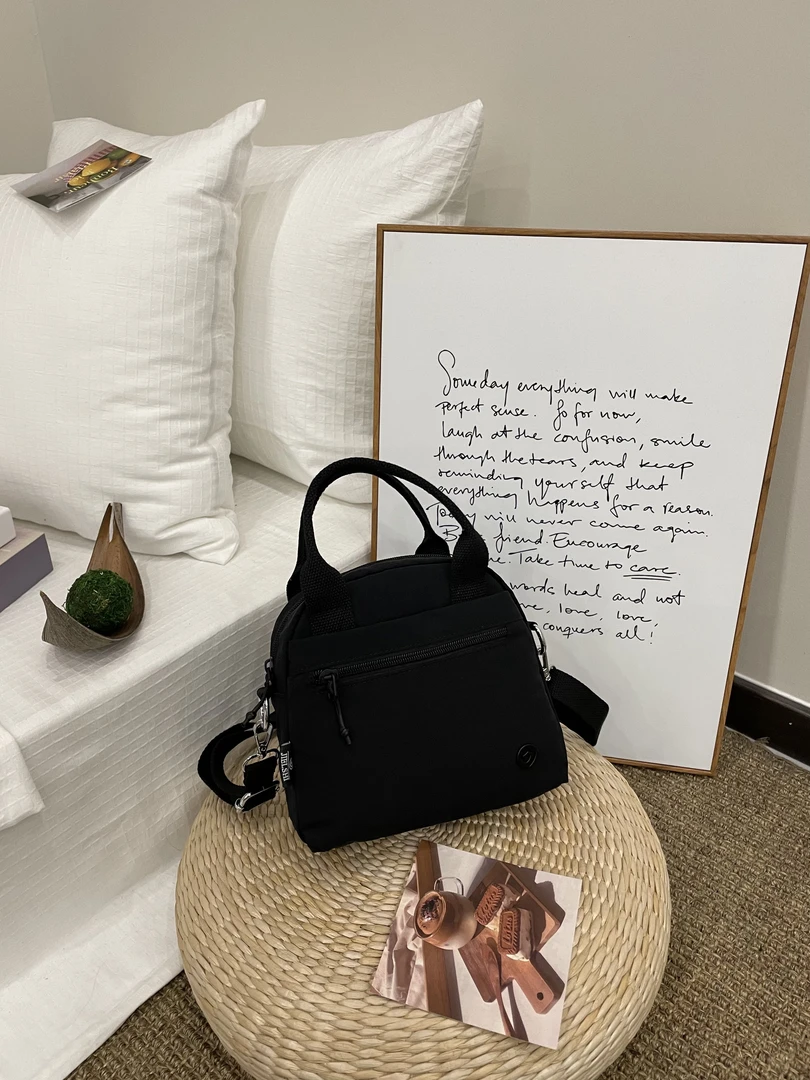 Someday everything will make
perfect sense. So for now,
laugh at the confusion, smile
through the tears, and keep
reminding yourself that
everything happens for a reason.
will never come again.
friend. Encourage
Take time to care.
words heal and not
love, love,
conquers all!
JIBLSHI